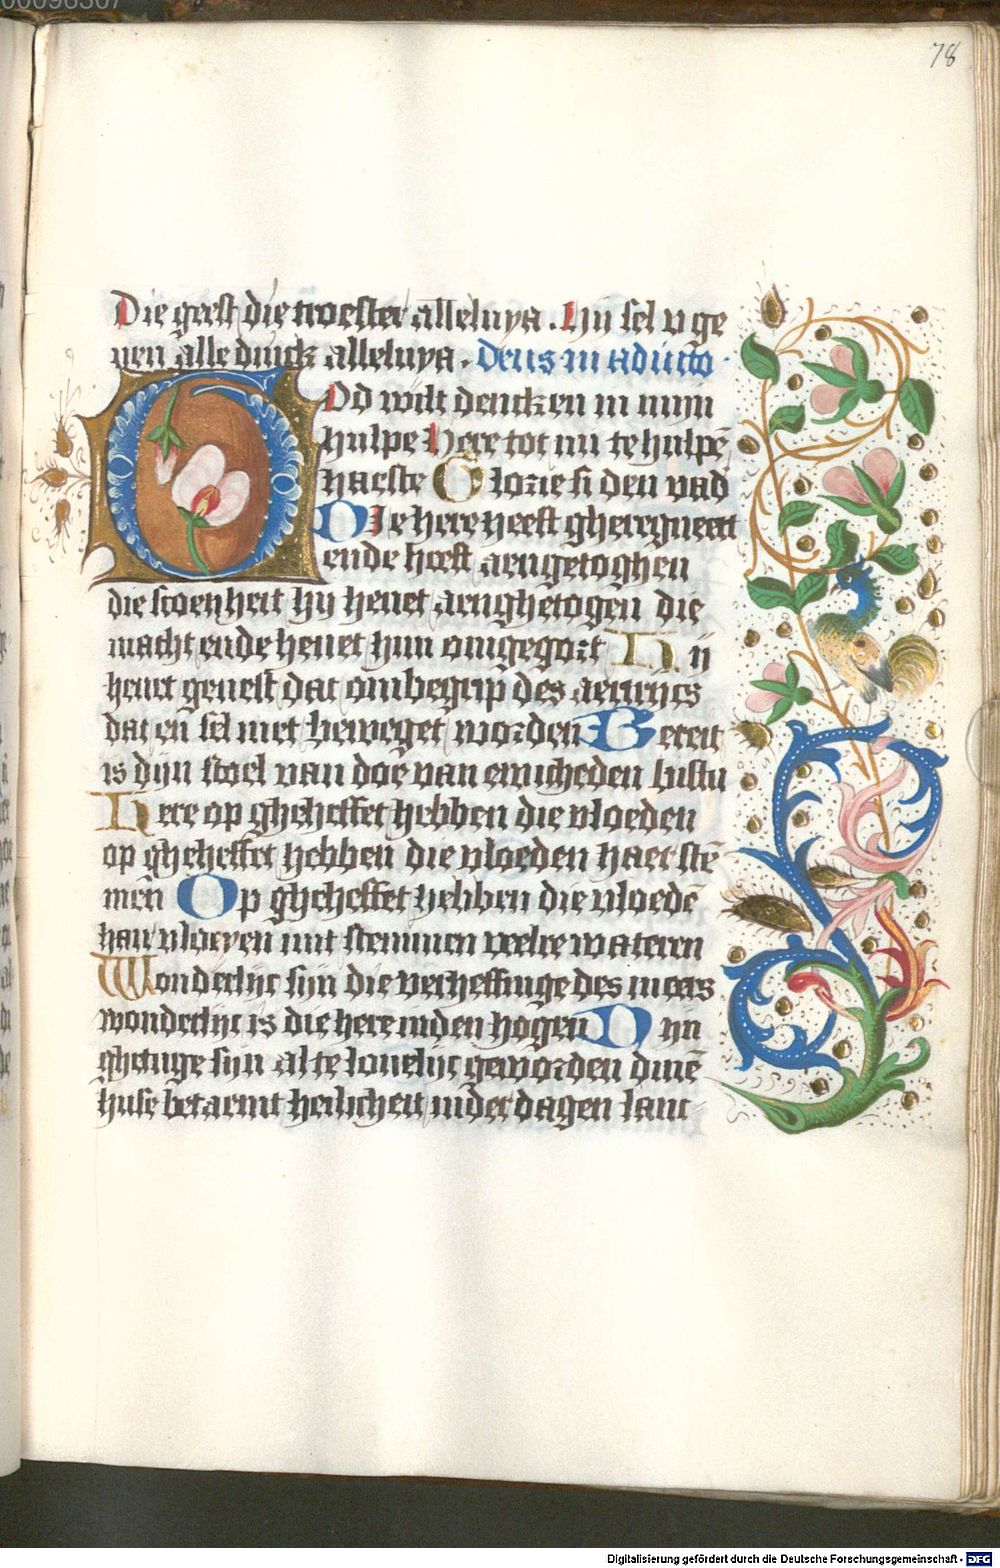 78
Die geest die troester alleluya . Hij sel v ge
uen alle dinck alleluya . Deus in adiuto
God wilt dencken in mijn
hulpe Here tot mi te hulpē
haeste Glorie si den vad
Die here heeft gheregneert
ende heeft aengetoghen
die scoenheit hij heuet aenghetogen die
macht ende heuet hem omgegort Hij
heuet geuest dat ombegrip des aertrijcs
dat en sel niet beweget worden Bereit
is dijn stoel van doe van ewicheden bistu
Here op gheheffet hebben die vloeden
op gheheffet hebben die vloeden haer stē
men Op gheheffet hebben die vloedē
haer vloeyen mit stemmen veelre wateren
Wonderlijc sijn die verheffinge des meers
wonderlijc is die here inden hogen Dijn
ghetuge sijn al te louelijc geworden dinē
huse betaemt heilicheit inder dagen lanc-
Digitalisierung gefördert durch die Deutsche Forschungsgemeinschaft - DFG